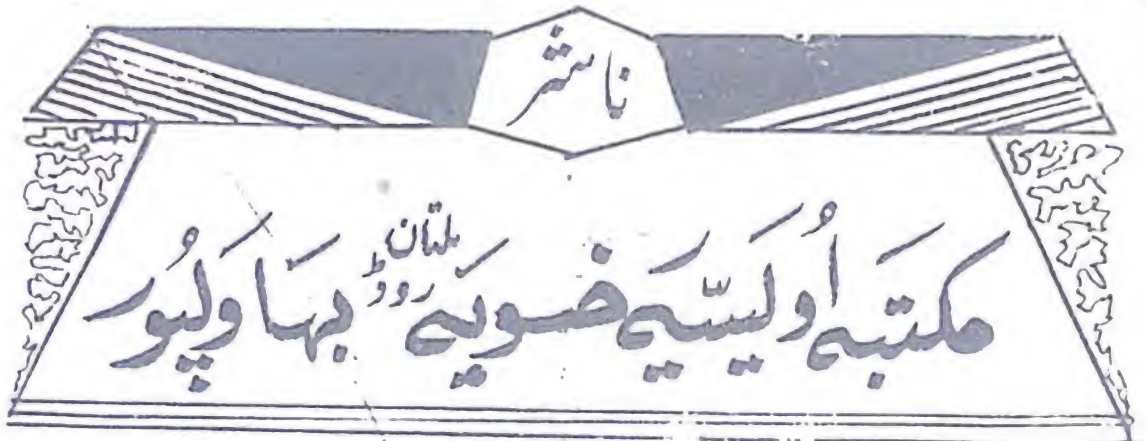 ناشر
مکتبہ اُویسیّہ رضویہ ملتان روڈ بہاولپُور